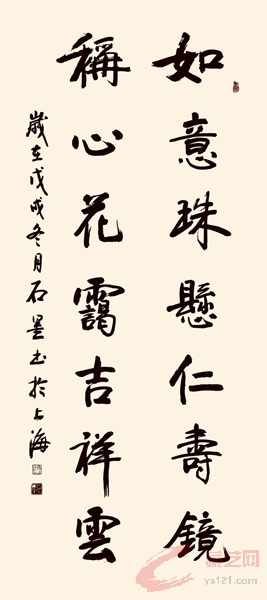 如意珠懸仁壽鏡
稱心花靄吉祥雲
歲在戊戌冬月石墨書於上海
ys121.com